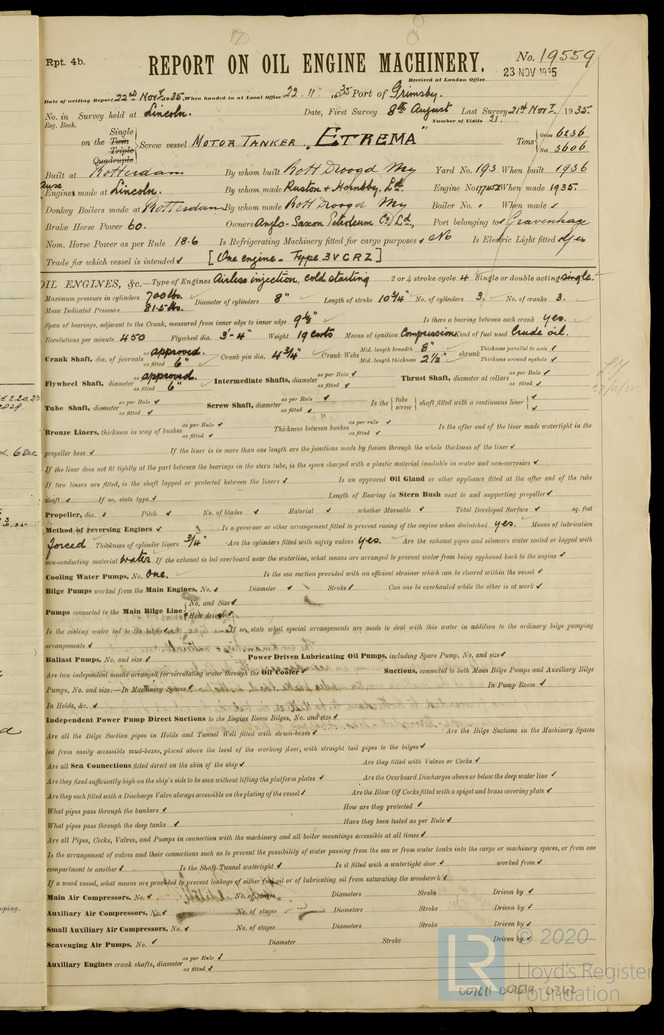 Rpt. 4b.
REPORT ON OIL ENGINE MACHINERY.
No. 19559
Received at London Office
23 NOV 1935
Date of writing Report 22nd Novr. 1935. When handed in at Local Office 22. 11. 1935 Port of Grimsby.
No. in Survey held at Lincoln. Date, First Survey 8th August Last Survey 21st Novr. 1935.
Reg. Book. Number of Visits 21.
Single
on the Twin Screw vessel MOTOR TANKER "ETREMA"
Triple
Quadruple
Tons Gross 6236
Net 3606
Built at Rotterdam By whom built Rott Droogd My Yard No. 193 When built 1936
Engines made at Lincoln. By whom made Ruston & Hornsby, Ltd. Engine No. When made 1935.
Donkey Boilers made at Rotterdam By whom made Rott Droogd My Boiler No. When made
Brake Horse Power 60. Owners Anglo-Saxon Petroleum Co Ld. Port belonging to s'Gravenhage
Nom. Horse Power as per Rule 18.6 Is Refrigerating Machinery fitted for cargo purposes No Is Electric Light fitted Yes
Trade for which vessel is intended [One engine - Type 3VCRZ]
OIL ENGINES, &c.—Type of Engines Airless injection, cold starting 2 or 4 stroke cycle 4 Single or double acting single.
Maximum pressure in cylinders 700 lbs. Diameter of cylinders 8" Length of stroke 10 3/4" No. of cylinders 3. No. of cranks 3.
Mean Indicated Pressure 81.5 lbs.
Span of bearings, adjacent to the Crank, measured from inner edge to inner edge 9 1/2" Is there a bearing between each crank yes.
Revolutions per minute 450 Flywheel dia. 3'-4" Weight 19 cwts Means of ignition Compression Kind of fuel used Crude oil.
Crank Shaft, dia. of journals as per Rule approved. as fitted 6" Crank pin dia. 4 3/4" Crank Webs Mid. length breadth 8" Mid. length thickness 2 1/2" shrunk Thickness parallel to axis Thickness around eyehole
Flywheel Shaft, diameter as per Rule approved. as fitted 6" Intermediate Shafts, diameter as per Rule as fitted Thrust Shaft, diameter at collars as per Rule as fitted
Tube Shaft, diameter as per Rule as fitted Screw Shaft, diameter as per Rule as fitted Is the tube screw shaft fitted with a continuous liner
Bronze Liners, thickness in way of bushes as per Rule as fitted Thickness between bushes as per rule as fitted Is the after end of the liner made watertight in the
propeller boss If the liner is in more than one length are the junctions made by fusion through the whole thickness of the liner
If the liner does not fit tightly at the part between the bearings in the stern tube, is the space charged with a plastic material insoluble in water and non-corrosive
If two liners are fitted, is the shaft lapped or protected between the liners Is an approved Oil Gland or other appliance fitted at the after end of the tube
shaft If so, state type Length of Bearing in Stern Bush next to and supporting propeller
Propeller, dia. Pitch No. of blades Material whether Moveable Total Developed Surface sq. feet
Method of reversing Engines Is a governor or other arrangement fitted to prevent racing of the engine when declutched yes. Means of lubrication
forced Thickness of cylinder liners 3/4" Are the cylinders fitted with safety valves yes. Are the exhaust pipes and silencers water cooled or lagged with
non-conducting material water If the exhaust is led overboard near the waterline, what means are arranged to prevent water from being syphoned back to the engine
Cooling Water Pumps, No. One. Is the sea suction provided with an efficient strainer which can be cleared within the vessel
Bilge Pumps worked from the Main Engines, No. Diameter Stroke Can one be overhauled while the other is at work
Pumps connected to the Main Bilge Line No. and Size How driven
Is the cooling water led to the bilges If so, state what special arrangements are made to deal with this water in addition to the ordinary bilge pumping
arrangements
Ballast Pumps, No. and size Power Driven Lubricating Oil Pumps, including Spare Pump, No. and size
Are two independent means arranged for circulating water through the Oil Cooler Suctions, connected to both Main Bilge Pumps and Auxiliary Bilge
Pumps, No. and size:—In Machinery Spaces In Pump Room
In Holds, &c.
Independent Power Pump Direct Suctions to the Engine Room Bilges, No. and size
Are all the Bilge Suction pipes in Holds and Tunnel Well fitted with strum-boxes Are the Bilge Suctions in the Machinery Spaces
led from easily accessible mud-boxes, placed above the level of the working floor, with straight tail pipes to the bilges
Are all Sea Connections fitted direct on the skin of the ship Are they fitted with Valves or Cocks
Are they fixed sufficiently high on the ship's side to be seen without lifting the platform plates Are the Overboard Discharges above or below the deep water line
Are they each fitted with a Discharge Valve always accessible on the plating of the vessel Are the Blow Off Cocks fitted with a spigot and brass covering plate
What pipes pass through the bunkers How are they protected
What pipes pass through the deep tanks Have they been tested as per Rule
Are all Pipes, Cocks, Valves, and Pumps in connection with the machinery and all boiler mountings accessible at all times
Is the arrangement of valves and their connections such as to prevent the possibility of water passing from the sea or from water tanks into the cargo or machinery spaces, or from one
compartment to another Is the Shaft Tunnel watertight Is it fitted with a watertight door worked from
If a wood vessel, what means are provided to prevent leakage of either fuel oil or of lubricating oil from saturating the woodwork
Main Air Compressors, No. No. of stages Diameters Stroke Driven by
Auxiliary Air Compressors, No. No. of stages Diameters Stroke Driven by
Small Auxiliary Air Compressors, No. No. of stages Diameters Stroke Driven by
Scavenging Air Pumps, No. Diameter Stroke Driven by
Auxiliary Engines crank shafts, diameter as per Rule as fitted
© 2020
LR
Lloyd's Register
Foundation